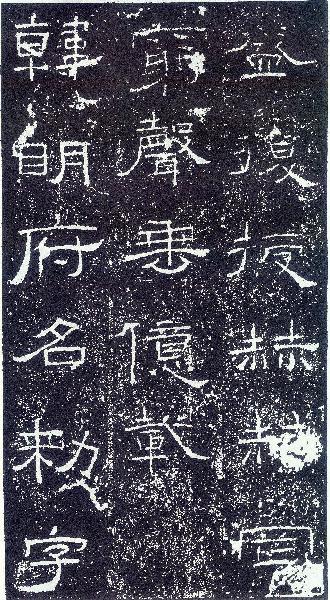 盛復授赫赫罔
窮聲垂億載
韓明府名敕字